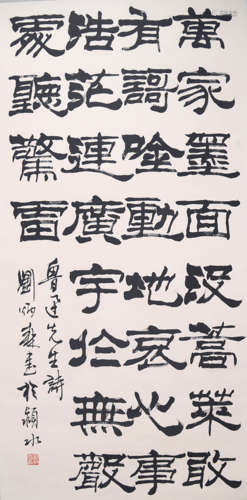 萬家墨面沒蒿萊敢
有謌唫動地哀心事
浩茫連廣宇於無聲
處聽驚雷
魯迅先生詩
劉炳森書於潁水